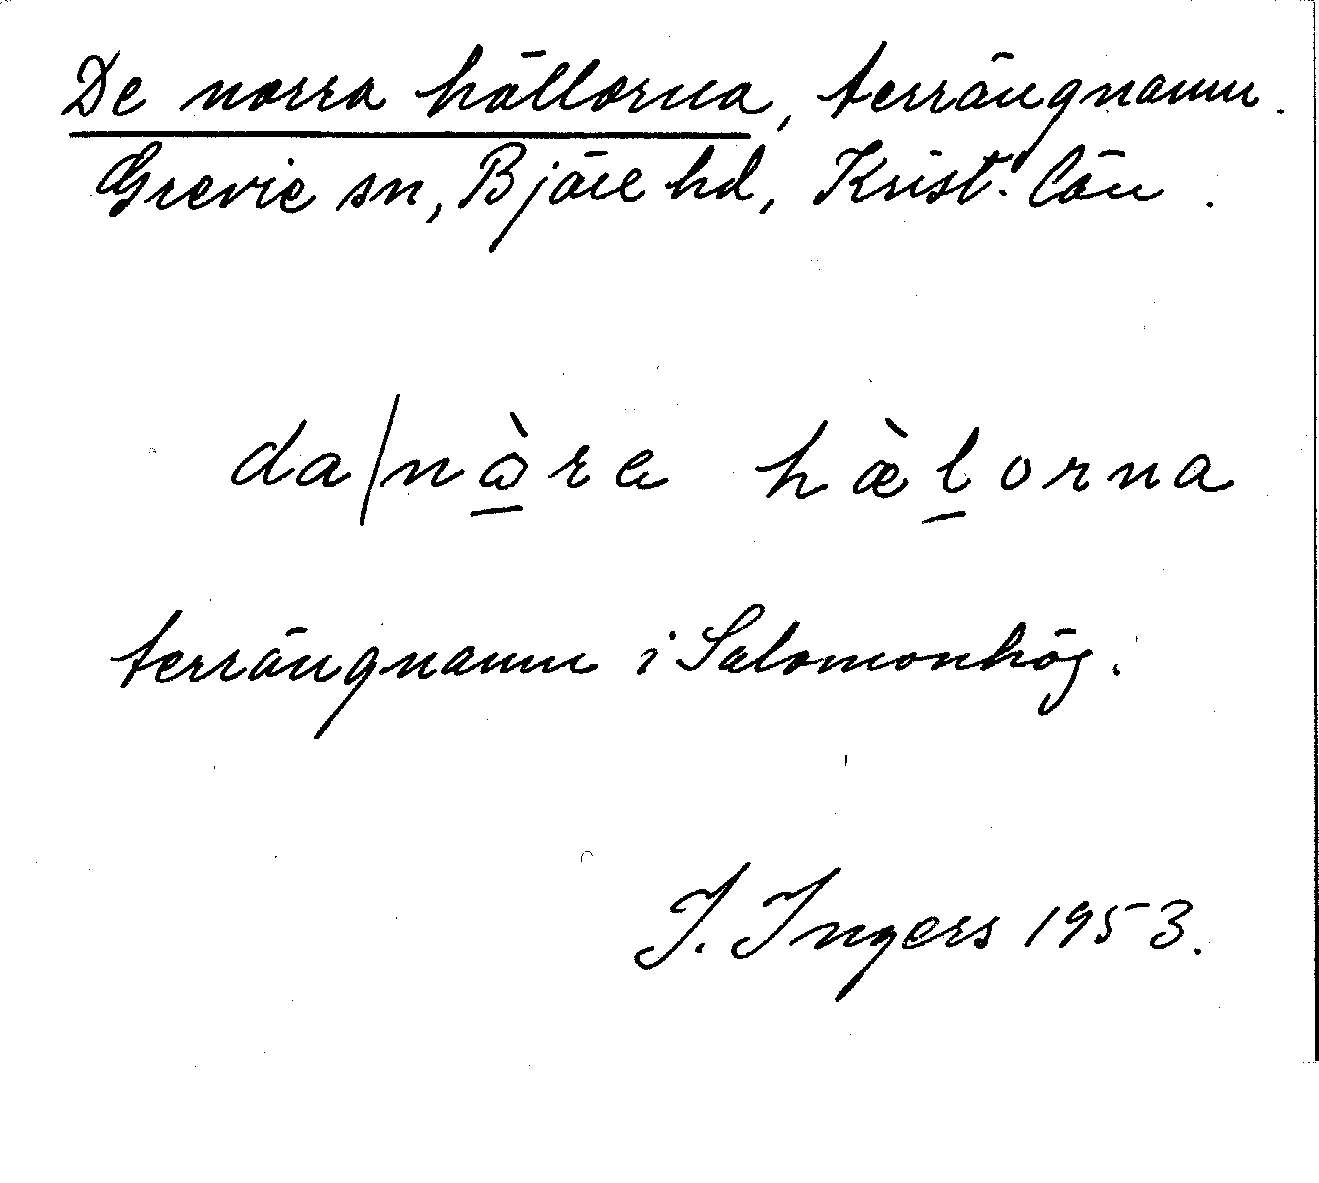 De norra hällorna, terrängnamn.
Grevie sn, Bjäre hd, Krist. län.
da/nòre hæ̀lorna
terrängnamn i Salomonhög.
I. Ingers 1953.